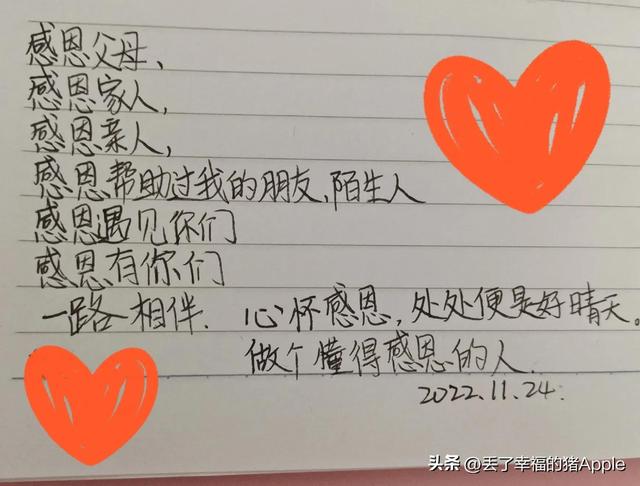 感恩父母、
感恩家人,
感恩亲人,
感恩帮助过我的朋友,陌生人
感恩遇见你们
感恩有你们
一路相伴. 心怀感恩,处处便是好晴天。
做个懂得感恩的人.
2022.11.24.
头条 @丢了幸福的猪Apple